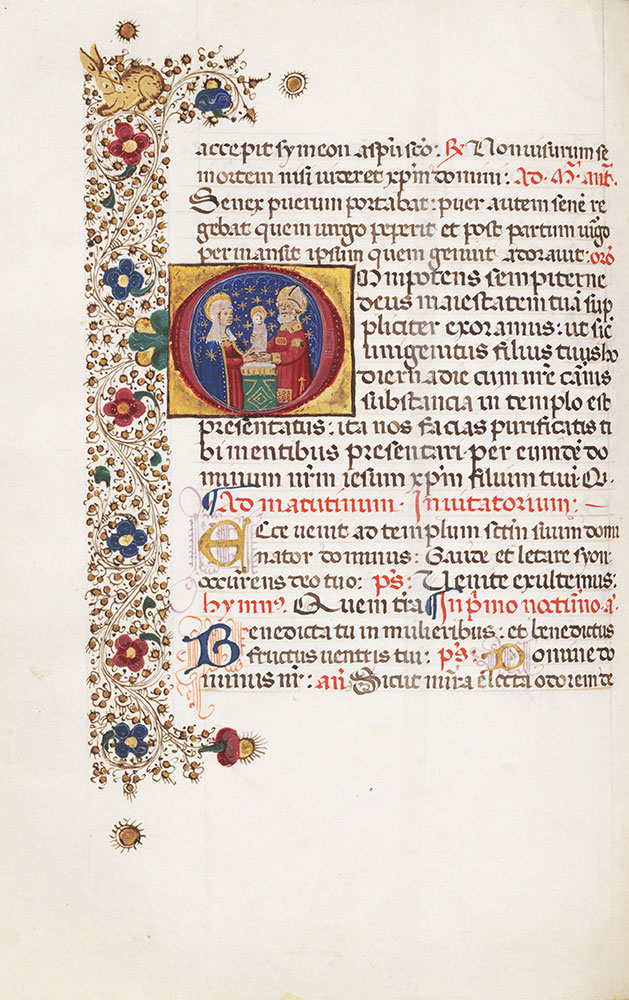 accepit symeon a spũ scõ: ℟ Non uisurum se
mortem nisi uideret xp̃m domini: Ad. M̃. ant̃.
Senex puerum portabat: puer autem senẽ re
gebat quem uirgo peperit et post partum uirgo
permansit ipsum quem genuit adorauit: orõ
OMnipotens sempiterne
deus maiestatem tuã sup
pliciter exoramus: ut sic
unigenitus filius tuus ho
dierna die cum nr̃e carnis
substancia in templo est
presentatus: ita nos facias purificatis ti
bi mentibus presentari. per eumdẽ do
minum nr̃m iesum xp̃m filium tuũ Q.
¶ Ad matutinum. Inuitatorium:
ECce venit ad templum sctm̃ suum domi
nator dominus: Gaude et letare syon
occurens deo tuo: ps̃: Venite exultemus:
hymnꝰ. Quem tr̃a ¶ In primo noct̃no. ã.
BEnedicta tu in mulieribus: et benedictus
fructus uentris tui: ps̃: Domine do
minus nr̃: añ Sicut mirra electa odorem de